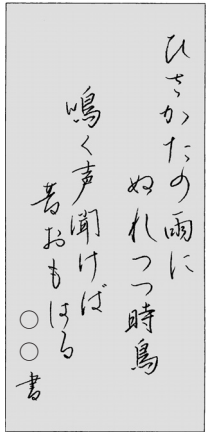 ひさかたの雨に
ぬれつつ時鳥
鳴く声聞けば
昔おもほる
○○書